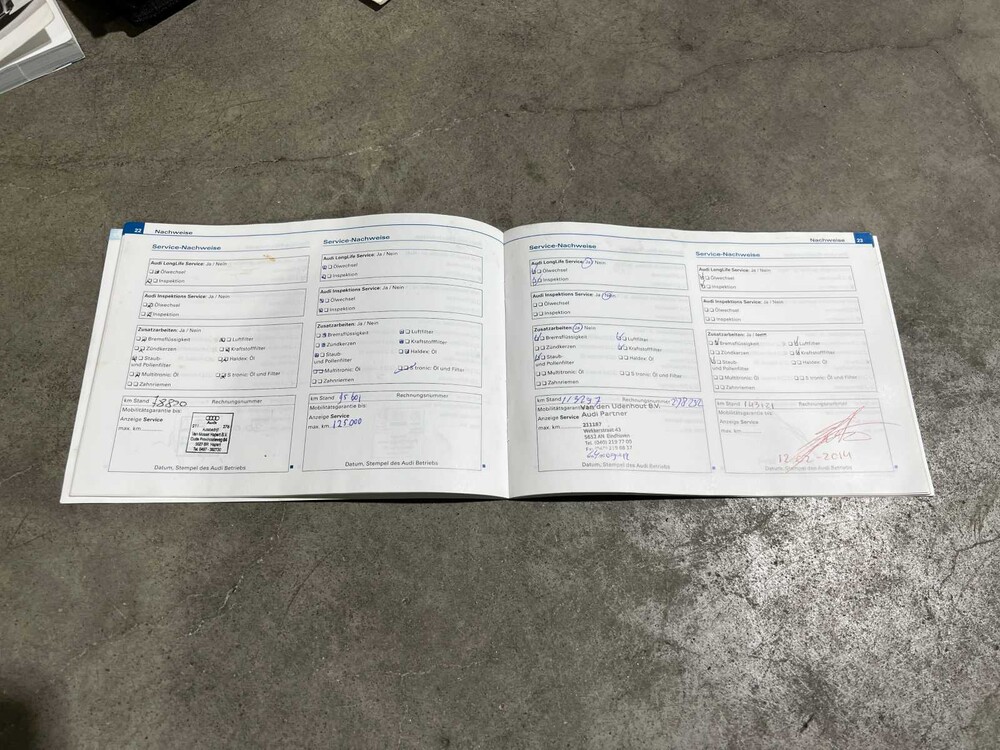 22 Nachweise
Service-Nachweise
Audi LongLife Service: Ja / Nein
Ölwechsel
Inspektion
Audi Inspektions Service: Ja / Nein
Ölwechsel
Inspektion
Zusatzarbeiten: Ja / Nein
Bremsflüssigkeit Luftfilter
Zündkerzen Kraftstofffilter
Staub- Haldex: Öl
und Pollenfilter
Multitronic: Öl S tronic: Öl und Filter
Zahnriemen
km Stand Rechnungsnummer
Mobilitätsgarantie bis:
Anzeige Service
max. km
Audi
Datum, Stempel des Audi Betriebs
Service-Nachweise
Audi LongLife Service: Ja / Nein
Ölwechsel
Inspektion
Audi Inspektions Service: Ja / Nein
Ölwechsel
Inspektion
Zusatzarbeiten: Ja / Nein
Bremsflüssigkeit Luftfilter
Zündkerzen Kraftstofffilter
Staub- Haldex: Öl
und Pollenfilter
Multitronic: Öl S tronic: Öl und Filter
Zahnriemen
km Stand Rechnungsnummer
Mobilitätsgarantie bis:
Anzeige Service
max. km 125.000
Datum, Stempel des Audi Betriebs
Service-Nachweise
Audi LongLife Service: Ja / Nein
Ölwechsel
Inspektion
Audi Inspektions Service: Ja / Nein
Ölwechsel
Inspektion
Zusatzarbeiten: Ja / Nein
Bremsflüssigkeit Luftfilter
Zündkerzen Kraftstofffilter
Staub- Haldex: Öl
und Pollenfilter
Multitronic: Öl S tronic: Öl und Filter
Zahnriemen
km Stand 113247 Rechnungsnummer
Mobilitätsgarantie
Van den Udenhout B.V.
Anzeige Service Audi Partner
max. km 211187
Eindhoven
Datum, Stempel des Audi Betriebs
Nachweise 23
Service-Nachweise
Audi LongLife Service: Ja / Nein
Ölwechsel
Inspektion
Audi Inspektions Service: Ja / Nein
Ölwechsel
Inspektion
Zusatzarbeiten: Ja / Nein
Bremsflüssigkeit Luftfilter
Zündkerzen Kraftstofffilter
Staub- Haldex: Öl
und Pollenfilter
Multitronic: Öl S tronic: Öl und Filter
Zahnriemen
km Stand Rechnungsnummer
Mobilitätsgarantie bis:
Anzeige Service
max. km
12-02-2014
Datum, Stempel des Audi Betriebs